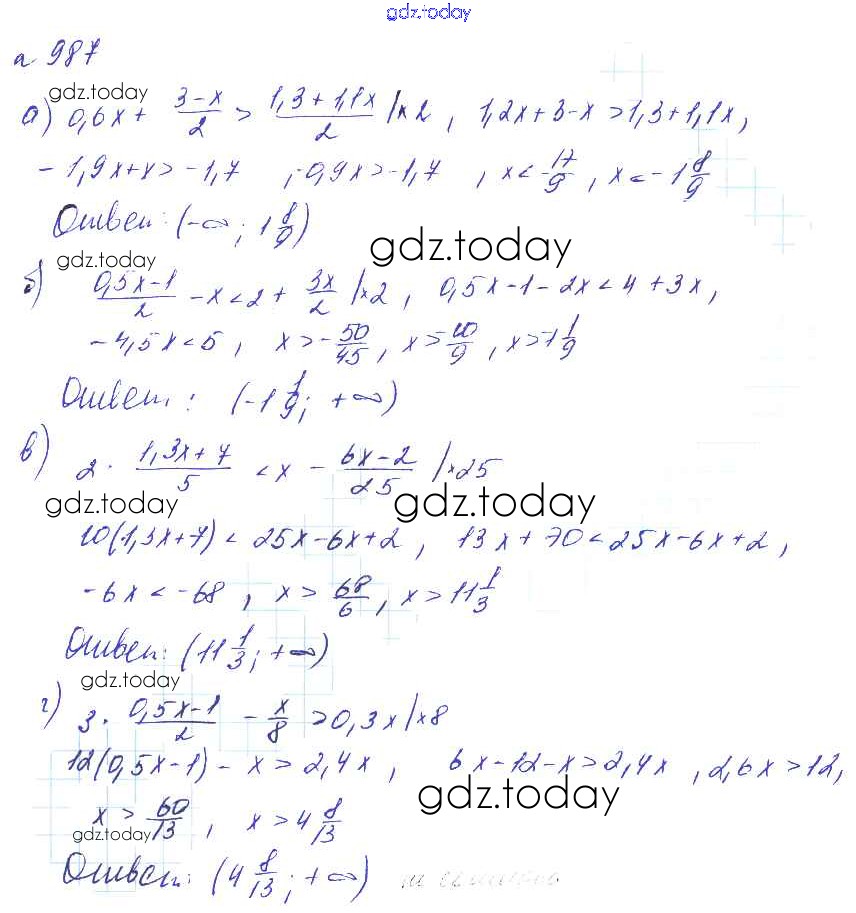 gdz.today
№ 987
gdz.today
а) 0,6x + (3-x)/2 > (1,3+1,1x)/2 |×2, 1,2x+3-x>1,3+1,1x,
-1,9x+x>-1,7, -0,9x>-1,7, x<-17/9, x<-1 8/9
Ответ: (-∞; 1 8/9)
gdz.today
gdz.today
б) (0,5x-1)/2 - x < 2 + 3x/2 |×2, 0,5x-1-2x<4+3x,
-4,5x<5, x>-50/45, x>-10/9, x>-1 1/9
Ответ: (-1 1/9; +∞)
в) 2· (1,3x+7)/5 < x - (6x-2)/25 |×25
gdz.today
gdz.today
10(1,3x+7) < 25x-6x+2, 13x+70<25x-6x+2,
-6x<-68, x> 68/6, x>11 1/3
Ответ: (11 1/3; +∞)
gdz.today
г) 3· (0,5x-1)/2 - x/8 > 0,3x |×8
12(0,5x-1) - x > 2,4x, 6x-12-x>2,4x, 2,6x>12,
gdz.today
x > 60/13, x>4 8/13
gdz.today
Ответ: (4 8/13; +∞)